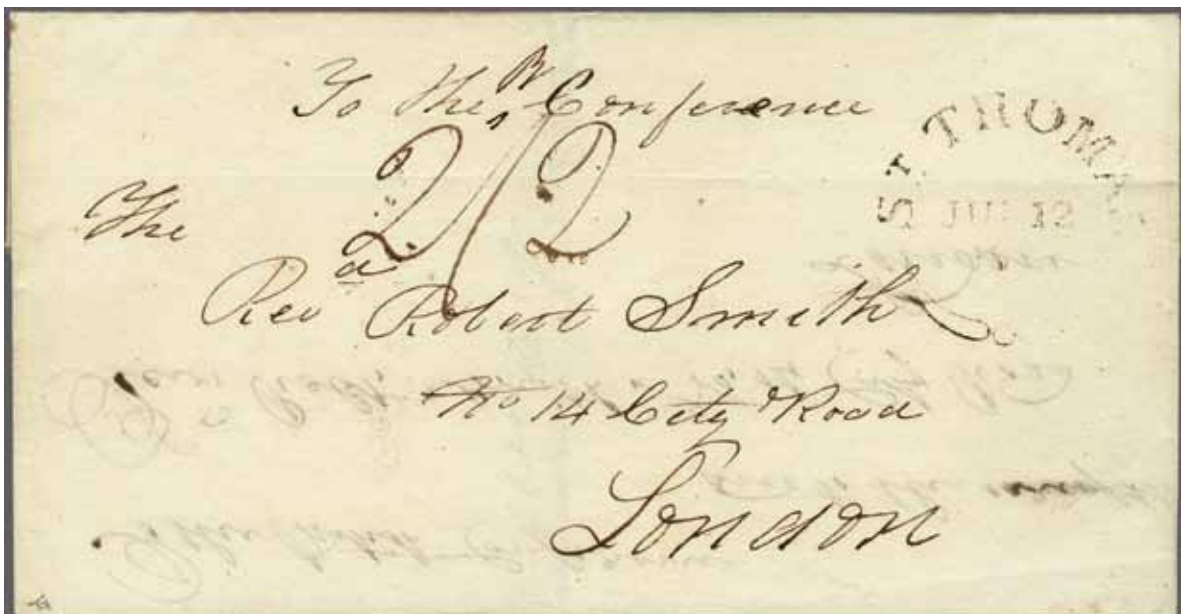 To the Conference
2/2
ST THOMAS
JU 12
The
Revd Robert Smith
No 14 City Road
London